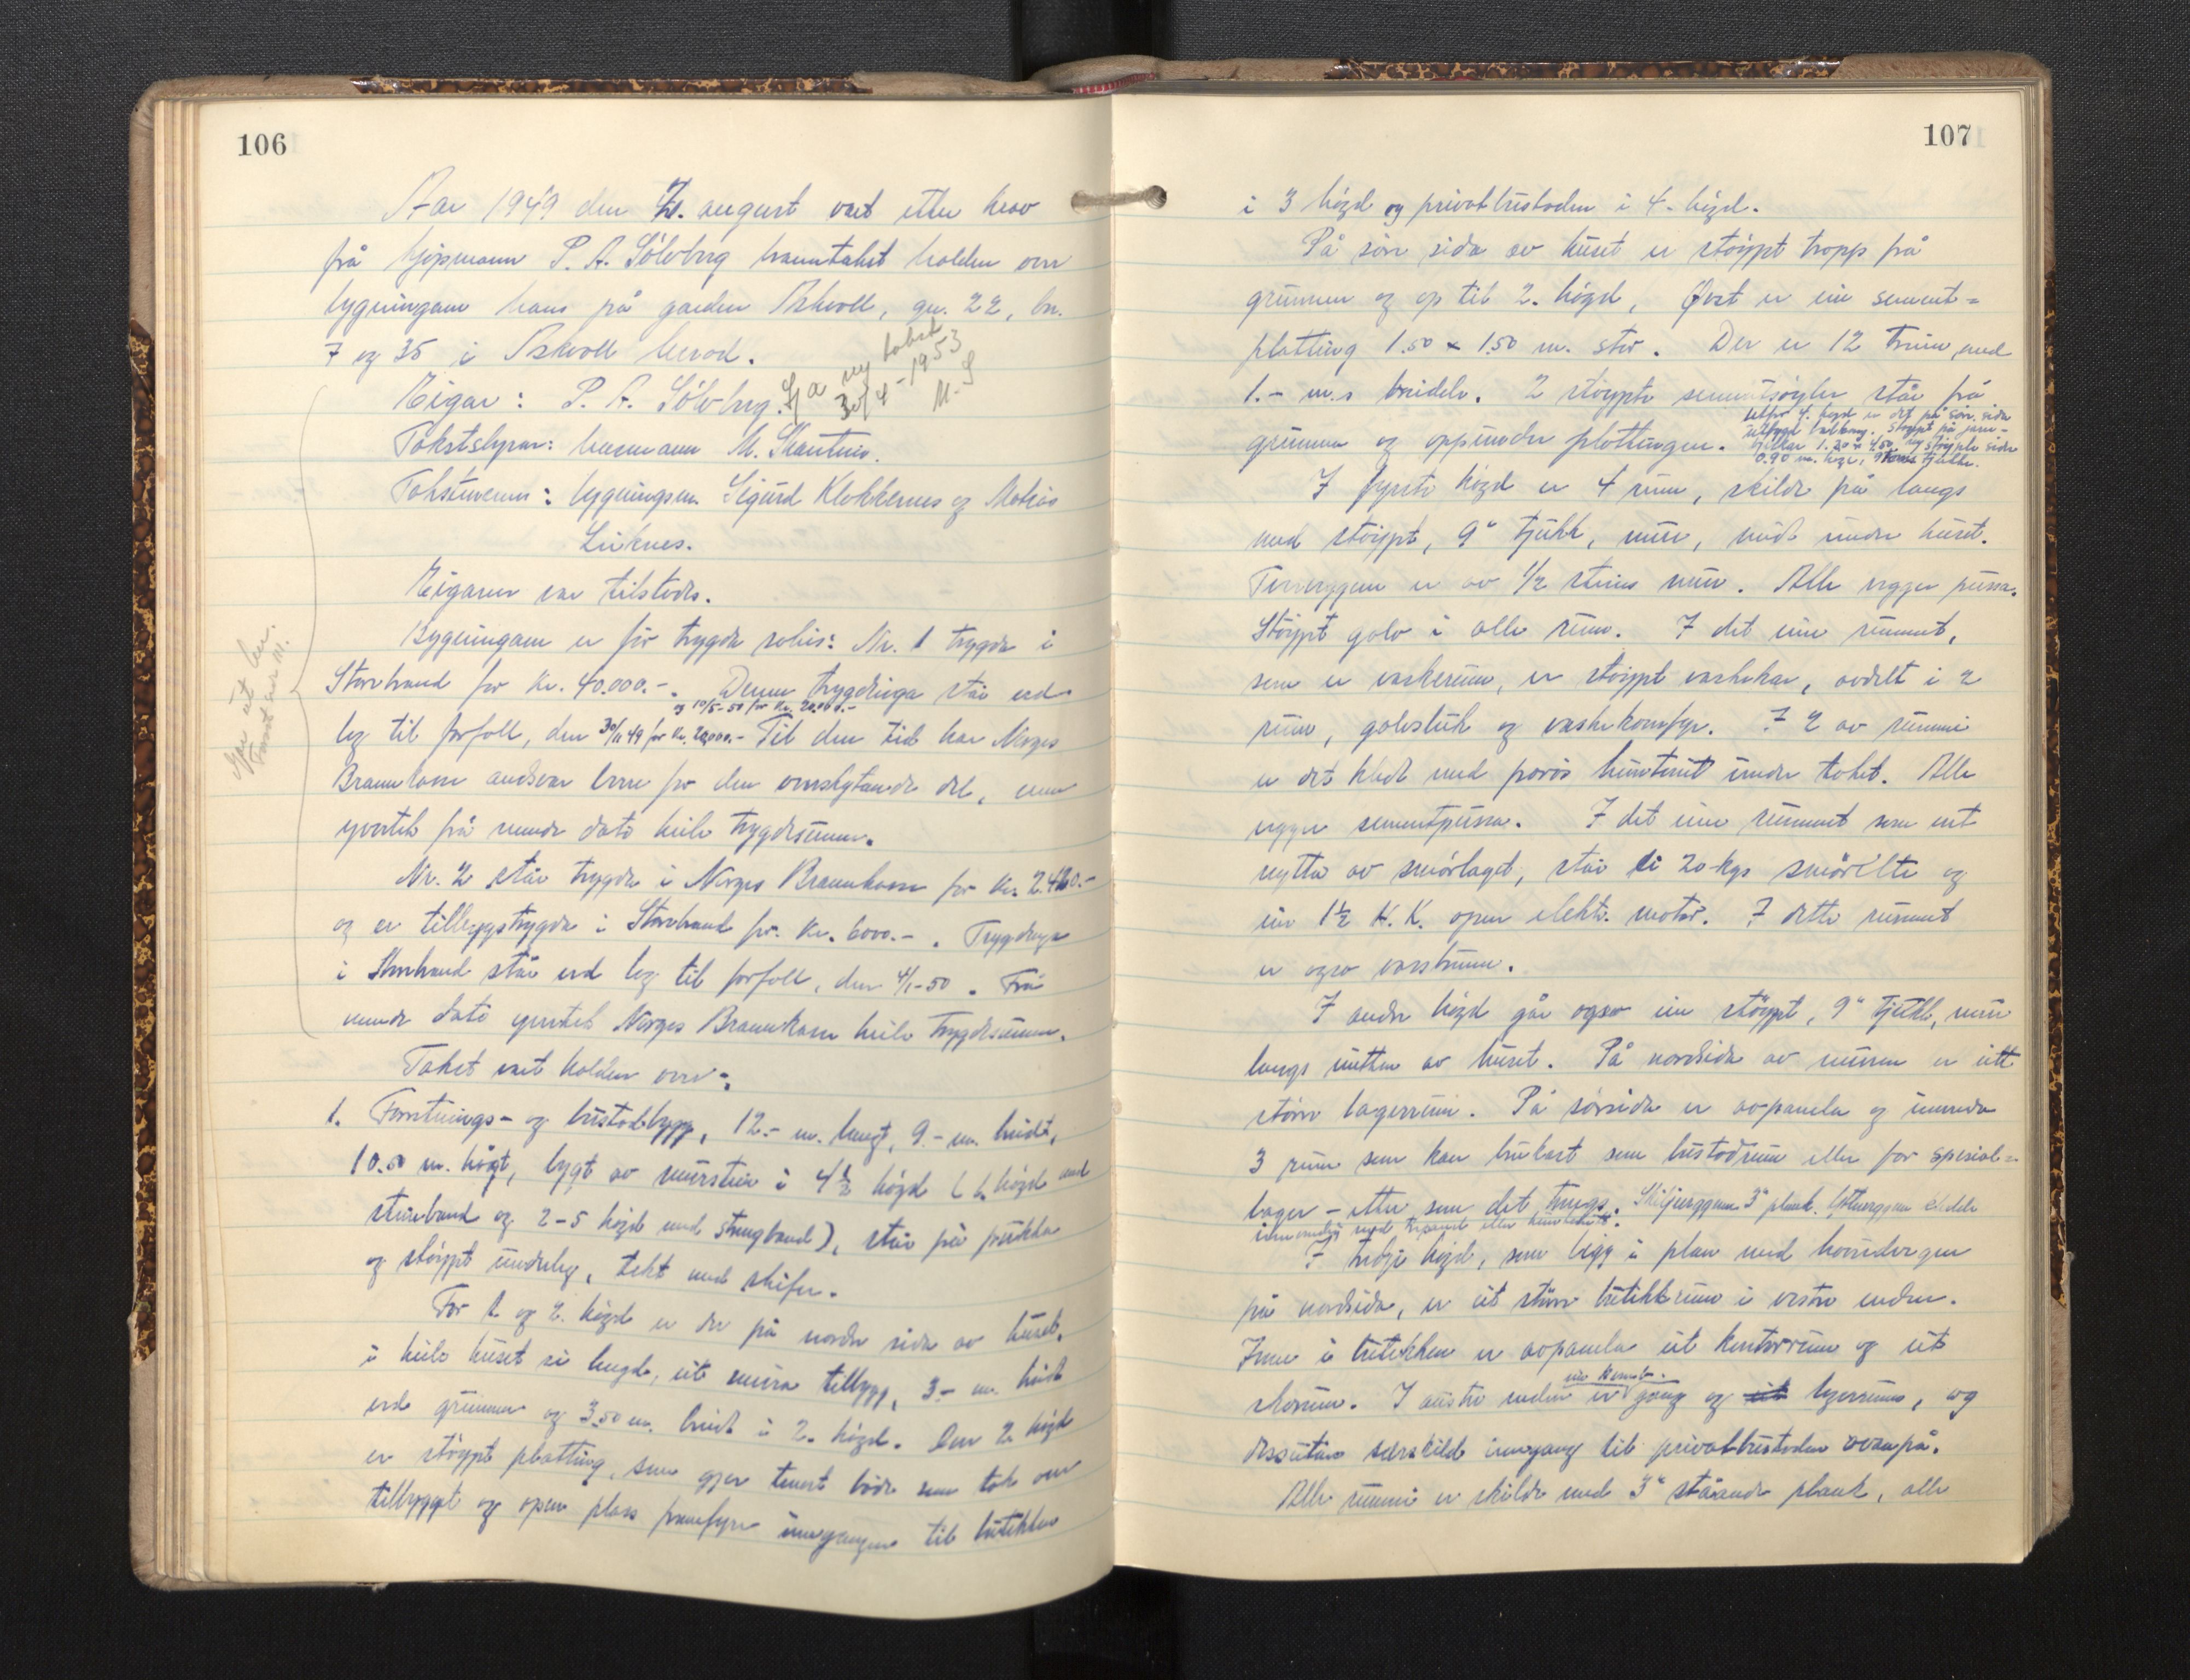 106
Aar 1949 den 20. august vart etter krav
frå kjøpmann P. A. Sölvberg branntakst halden over
bygningane hans på garden Askvoll, gn. 22, bn.
7 og 35 i Askvoll herad.
Eigar: P. A. Sölvberg. Sjå ny takst
30/4-1953
M. S
Takststyrar: lensmann M.
Takstmenn: bygningsm. Sigurd Klokkernes og Matias
Liknes.
Eigaren var tilstede.
Bygningane er för trygda soleis: Nr. 1 trygda i
Storbrand for kr. 40.000.-. Denne trygdinga står ved
og 10/5-50 for kr. 20.000.-
lag til forfall, den 30/11 49 for kr. 20,000.- Til den tid har Norges
Brannkasse andsvar berre for den overskytande del, men
yvertek frå nemde dato heile trygdesummen.
Nr. 2 står trygda i Norges Brannkasse for kr. 2.460.-
og er tilleggstrygda i Storbrand for kr. 6000.-. Trygdinga
i Storbrand står ved lag til forfall, den 4/1-50. Frå
nemde dato yvertek Norges Brannkasse heile trygdesummen.
Takst vart halden over:
1. Forretnings- og bustadbygg, 12.- m. langt, 9.- m. breidt,
10.50 m. högt, bygt av murstein i 4½ högd (1. högd med
steinband og 2-5 högd med strengband), står på pukka
og støypt underlag, tekt med skifer.
For 1 og 2. högd er der på nordre sida av huset,
i heile huset si lengd, eit mura tilbygg, 3.- m. breidt
ved grunnen og 3.50 m. breidt i 2. högd. Over 2. högd
er støypt platting, som gjer tenest både som tak over
tilbygget og open plass framfyre inngangen til butikken
107
i 3 högd og privatbustaden i 4. högd.
På söre sida av huset er støypt tropp frå
grunnen og op til 2. högd, Øvst er ein sement-
platting 1.50 x 1.50 m. stor. Der er 12 trinn, med
1.- m.s breidde. 2 støypte sementsøyler står frå
grunnen og oppunder plattingen.
utfor 4. högd er det på sör. sida
utbygd balkong. Støypt på jarn-
bjelkar 1.20 x 4.50 og støypte sider
0.90 m. høge, tjukke.
I fyrste högd er 4 rum, skilde på langs
med støypt, 9" tjukk, mur, midt under huset.
Tverveggene er av 1/2 steins mur. Alle vegger pussa.
Støypt golv i alle rum. I det eine rummet,
som er vaskerum, er støypt vaskekar, avdelt i 2
rum, golvsluk og vaskekomfyr. I 2 av rummi
er det kledt med porös huntonit under taket. Alle
vegger sementpussa. I det eine rummet som vert
nytta av smörlaget, står ei 20-kgs smörelte og
ein 1½ H.K. open elektr. motor. I dette rummet
er ogso vasstrum.
I andre högd går ogso ein støypt, 9" tjukk, mur
langs midten av huset. På nordsida av muren er eitt
större lagerrum. På sørsida er avpanela og innreda
3 rum som kan brukast som bustadrum eller for spesial-
lager – etter som det trengs. Skiljeveggane 3" plank.
innvendig med trepanel eller huntonit.
I tredje högd, som ligg i plan med hovudvegen
på nordsida, er eit større butikkrum i vestre enden.
Inne i butikken er avpanela eit kontorrum og eit
skorum. I austre enden er gang og eit lagerrum, og
dessutan serskild inngang til privatbustaden ovanpå.
Alle rummi er skilde med 3" ståande plank, alle